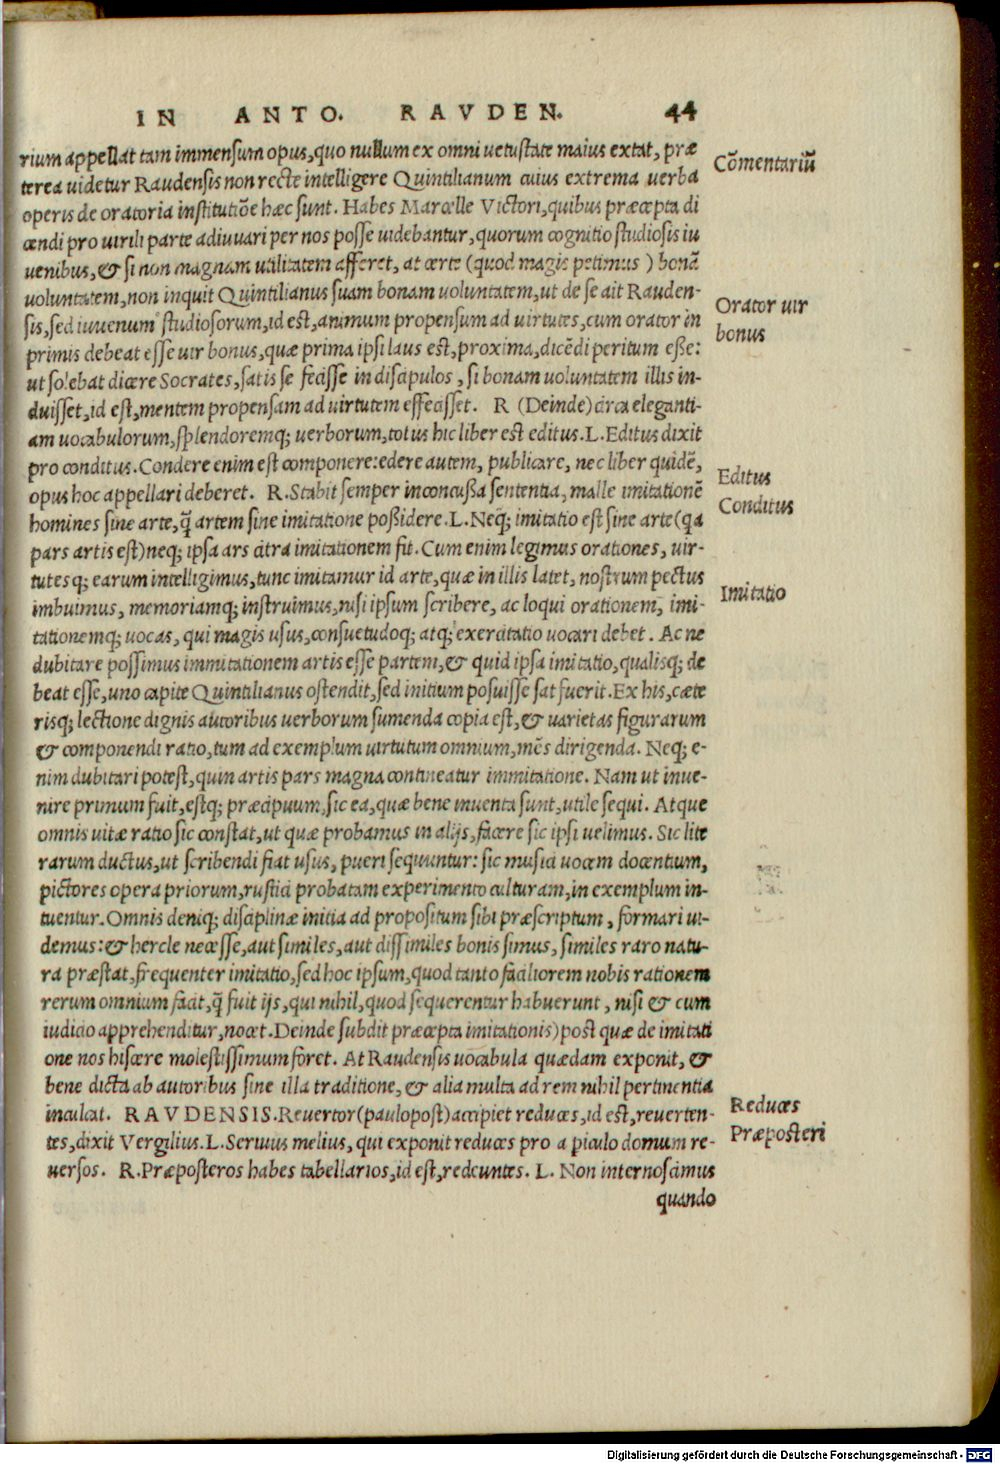 IN ANTO. RAVDEN. 44
rium appellat tam immensum opus, quo nullum ex omni uetustate maius extat, præ
terea uidetur Raudensis non recte intelligere Quintilianum cuius extrema uerba
operis de oratoria institutiõe hæc sunt. Habes Marcelle Victori, quibus præcepta di
cendi pro uirili parte adiuuari per nos posse uidebantur, quorum cognitio studiosis iu
uenibus, & si non magnam utilitatem afferet, at certe (quod magis petimus) bonã
uoluntatem, non inquit Quintilianus suam bonam uoluntatem, ut de se ait Rauden-
sis, sed iuuenum studiosorum, id est, animum propensum ad uirtutes, cum orator in
primis debeat esse uir bonus, quæ prima ipsi laus est, proxima, dicẽdi peritum eße:
ut solebat dicere Socrates, satis se fecisse in discipulos, si bonam uoluntatem illis in-
duisset, id est, mentem propensam ad uirtutem effecisset. R (Deinde) circa eleganti-
am uocabulorum, splendoremq; uerborum, totus hic liber est editus. L. Editus dixit
pro conditus. Condere enim est componere: edere autem, publicare, nec liber quidẽ,
opus hoc appellari deberet. R. Stabit semper inconcußa sententia, malle imitationẽ
homines sine arte, q̃ artem sine imitatione poßidere. L. Neq; imitatio est sine arte (qa
pars artis est) neq; ipsa ars citra imitationem fit. Cum enim legimus orationes, uir-
tutesq; earum intelligimus, tunc imitamur id arte, quæ in illis latet, nostrum pectus
imbuimus, memoriamq; instruimus, nisi ipsum scribere, ac loqui orationem, imi-
tationemq; uocas, qui magis usus, consuetudoq; atq; exercitatio uocari debet. Ac ne
dubitare possimus immitationem artis esse partem, & quid ipsa imitatio, qualisq; de
beat esse, uno capite Quintilianus ostendit, sed initium posuisse sat fuerit. Ex his, cæte
risq; lectione dignis autoribus uerborum sumenda copia est, & uarietas figurarum
& componendi ratio, tum ad exemplum uirtutum omnium, mẽs dirigenda. Neq; e-
nim dubitari potest, quin artis pars magna contineatur immitatione. Nam ut inue-
nire primum fuit, estq; præcipuum, sic ea, quæ bene inuenta sunt, utile sequi. Atque
omnis uitæ ratio sic constat, ut quæ probamus in alijs, facere sic ipsi uelimus. Sic lite
rarum ductus, ut scribendi fiat usus, pueri sequuntur: sic musici uocem docentium,
pictores opera priorum, rustici probatam experimento culturam, in exemplum in-
tuentur. Omnis deniq; disciplinæ initia ad propositum sibi præscriptum, formari ui-
demus: & hercle necesse, aut similes, aut dissimiles bonis simus, similes raro natu-
ra præstat, frequenter imitatio, sed hoc ipsum, quod tanto faciliorem nobis rationem
rerum omnium facit, q̃ fuit ijs, qui nihil, quod sequerentur habuerunt, nisi & cum
iudicio apprehenditur, nocet. Deinde subdit præcepta imitationis) post quæ de imitati
one nos hiscere molestissimum foret. At Raudensis uocabula quædam exponit, &
bene dicta ab autoribus sine illa traditione, & alia multa ad rem nihil pertinentia
inculcat. RAVDENSIS. Reuertor (paulopost) accipiet reduces, id est, reuerten-
tes, dixit Vergilius. L. Seruius melius, qui exponit reduces pro a piculo domum re-
uersos. R. Præposteros habes tabellarios, id est, redeuntes. L. Non internoscimus
quando
Cõmentariũ
Orator uir
bonus
Editus
Conditus
Imitatio
Reduces
Præposteri
Digitalisierung gefördert durch die Deutsche Forschungsgemeinschaft - DFG